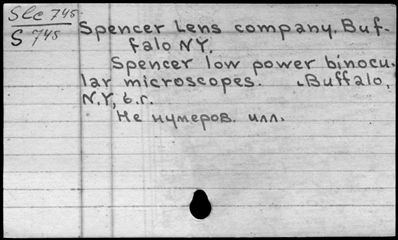 Slc 745
S 745
Spencer Lens company, Buf-
falo NY.
Spencer low power binocu-
lar microscopes. Buffalo,
N.Y, б.г.
Не нумеров. илл.